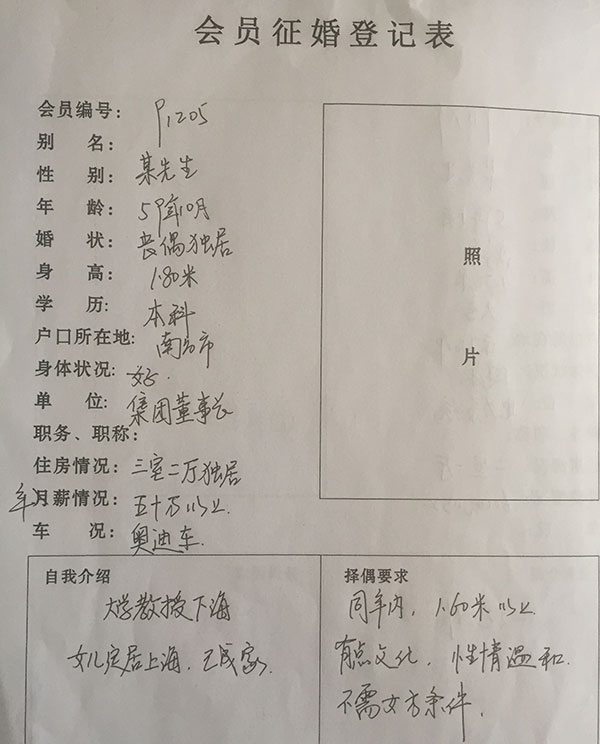 会员征婚登记表
会员编号： P1205
别 名：
性 别： 某先生
年 龄： 59年10月
婚 状： 丧偶独居
身 高： 1.80米
学 历： 本科
户口所在地： 南京市
身体状况： 好.
单 位： 集团董事长
职务、职称：
住房情况： 三室二厅独居
年月薪情况： 五十万以上.
车 况： 奥迪车.
照
片
自我介绍
大学教授下海
女儿定居上海.已成家.
择偶要求
同年内，1.60米以上
有点文化，性情温和.
不需女方条件.